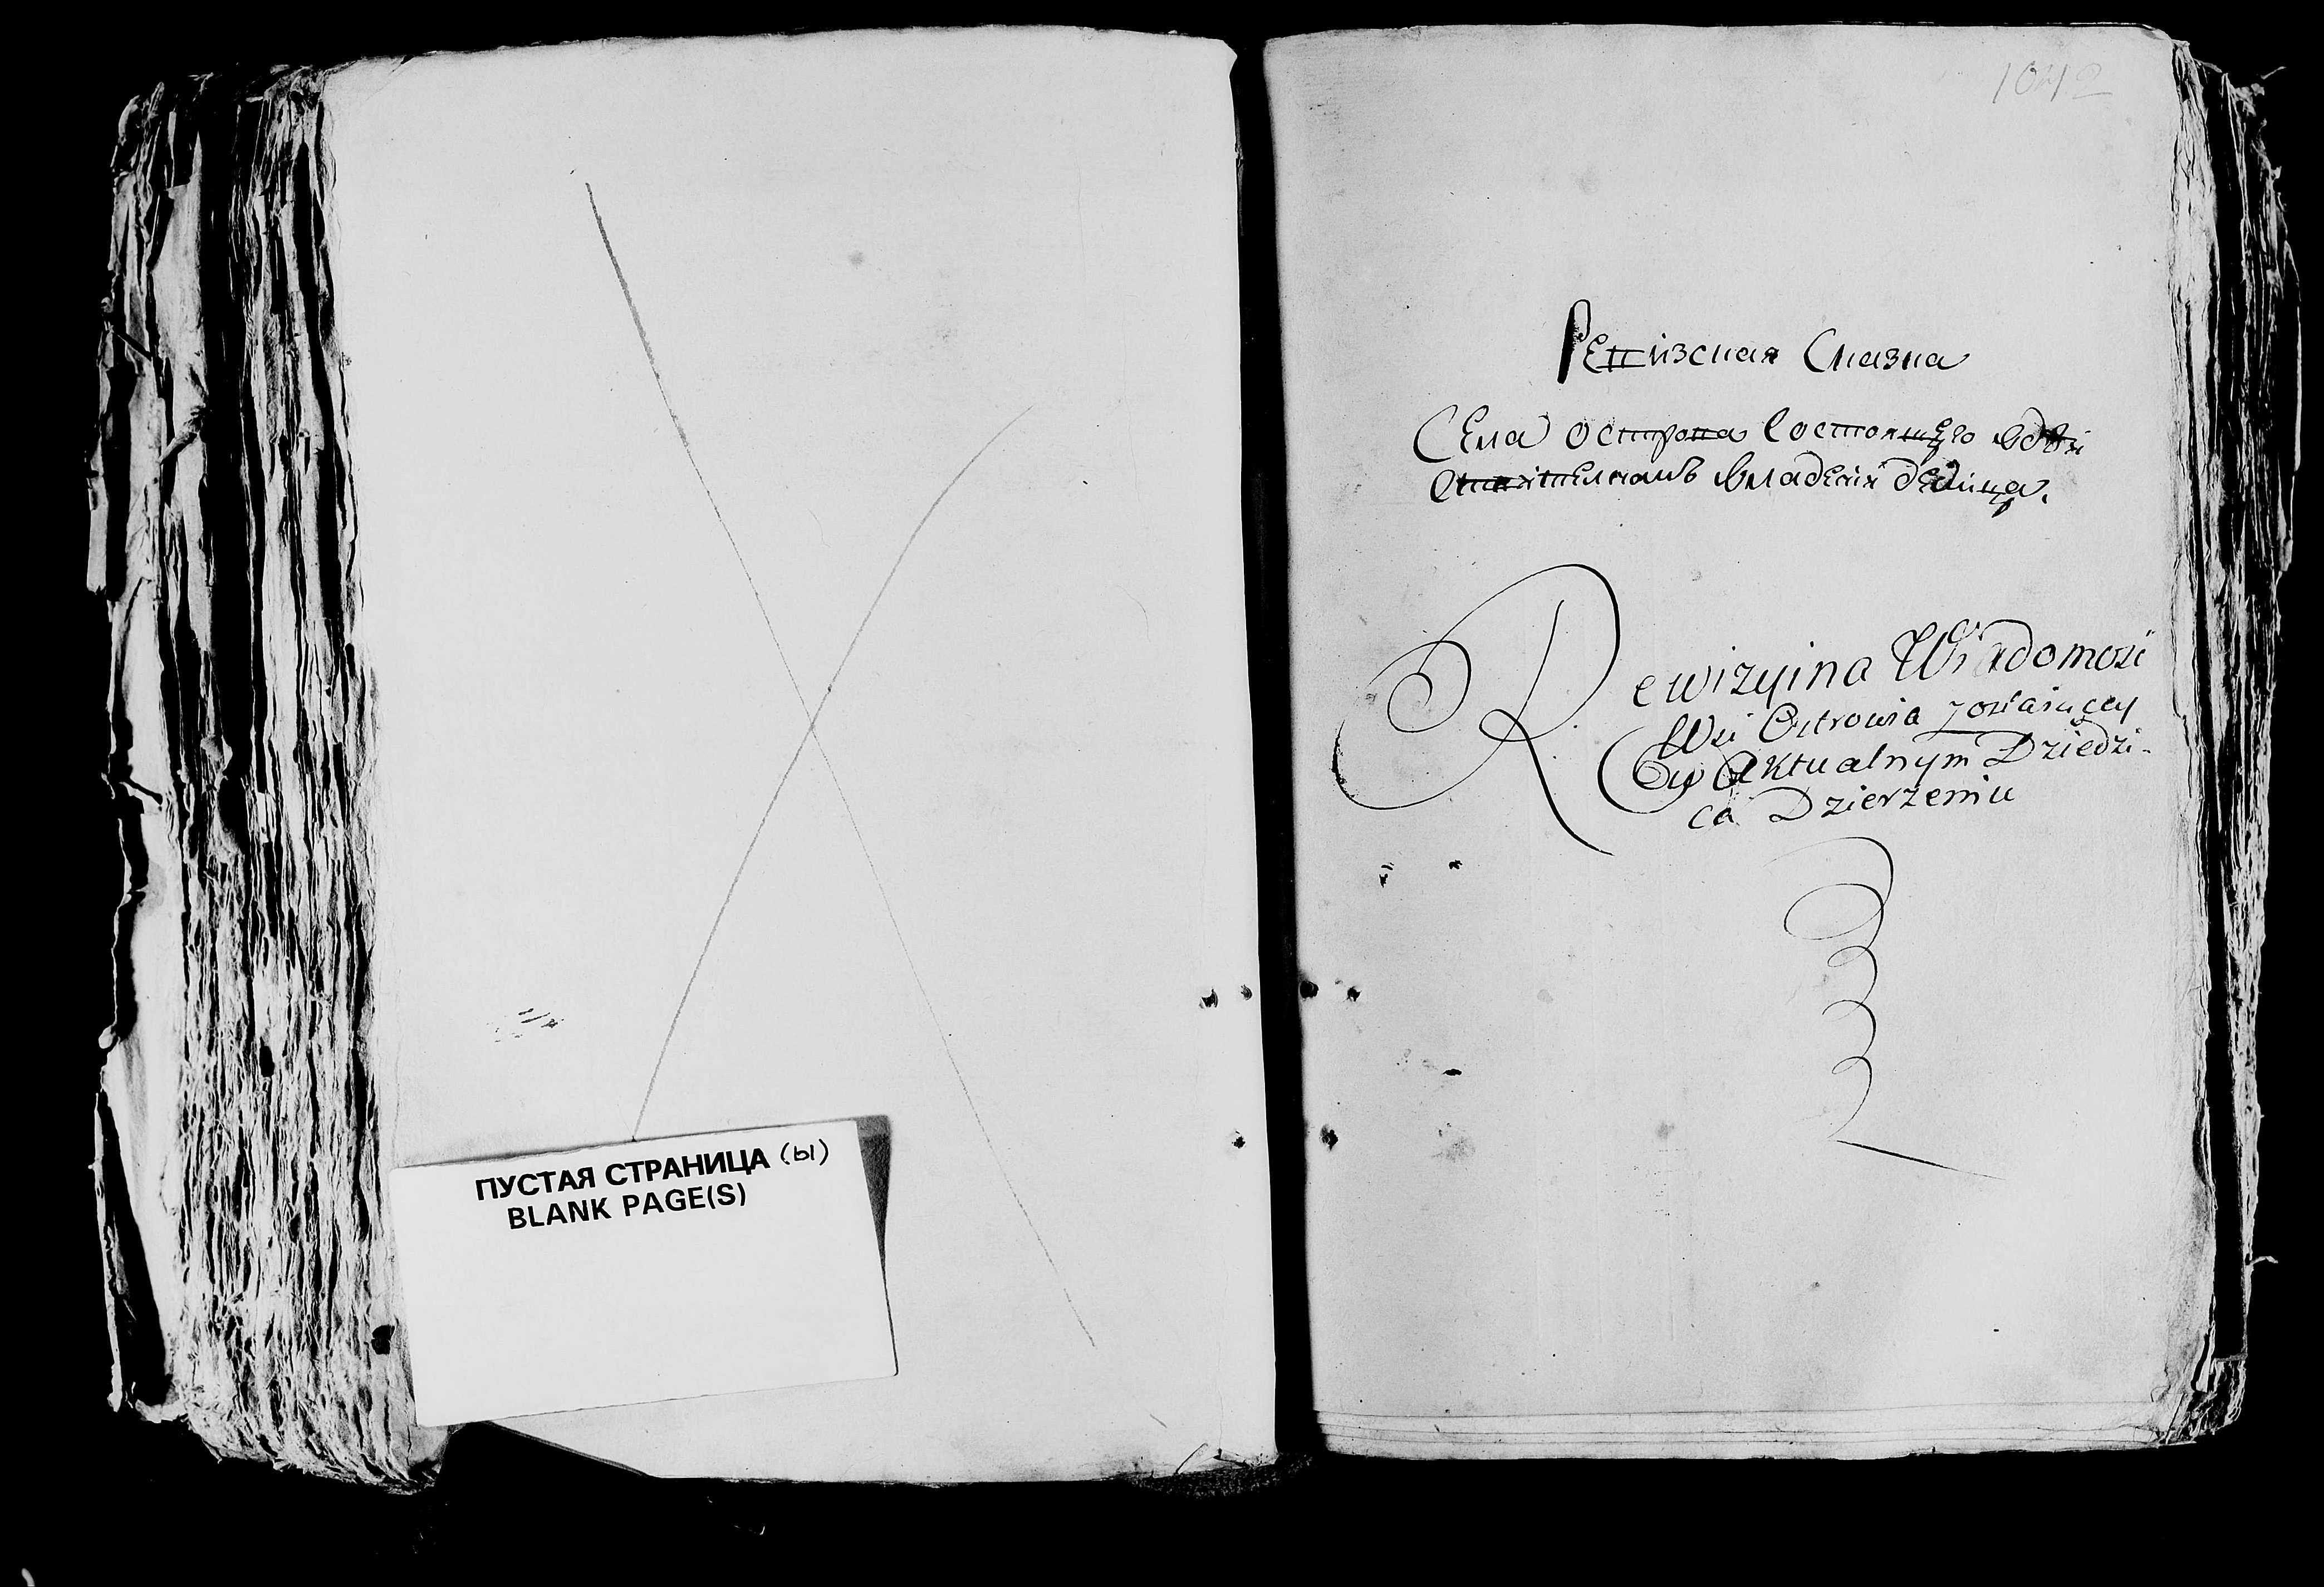 ПУСТАЯ СТРАНИЦА (ы)
BLANK PAGE(S)
1042
Ревизская Сказка
Села острова Состоящего вдѣй
ствителномъ владениі дедица.
Rewizyina Wiadomość
Wsi Ostrowia zostaiącey
w Aktualnym Dziedzi-
ca Dzierzeniu